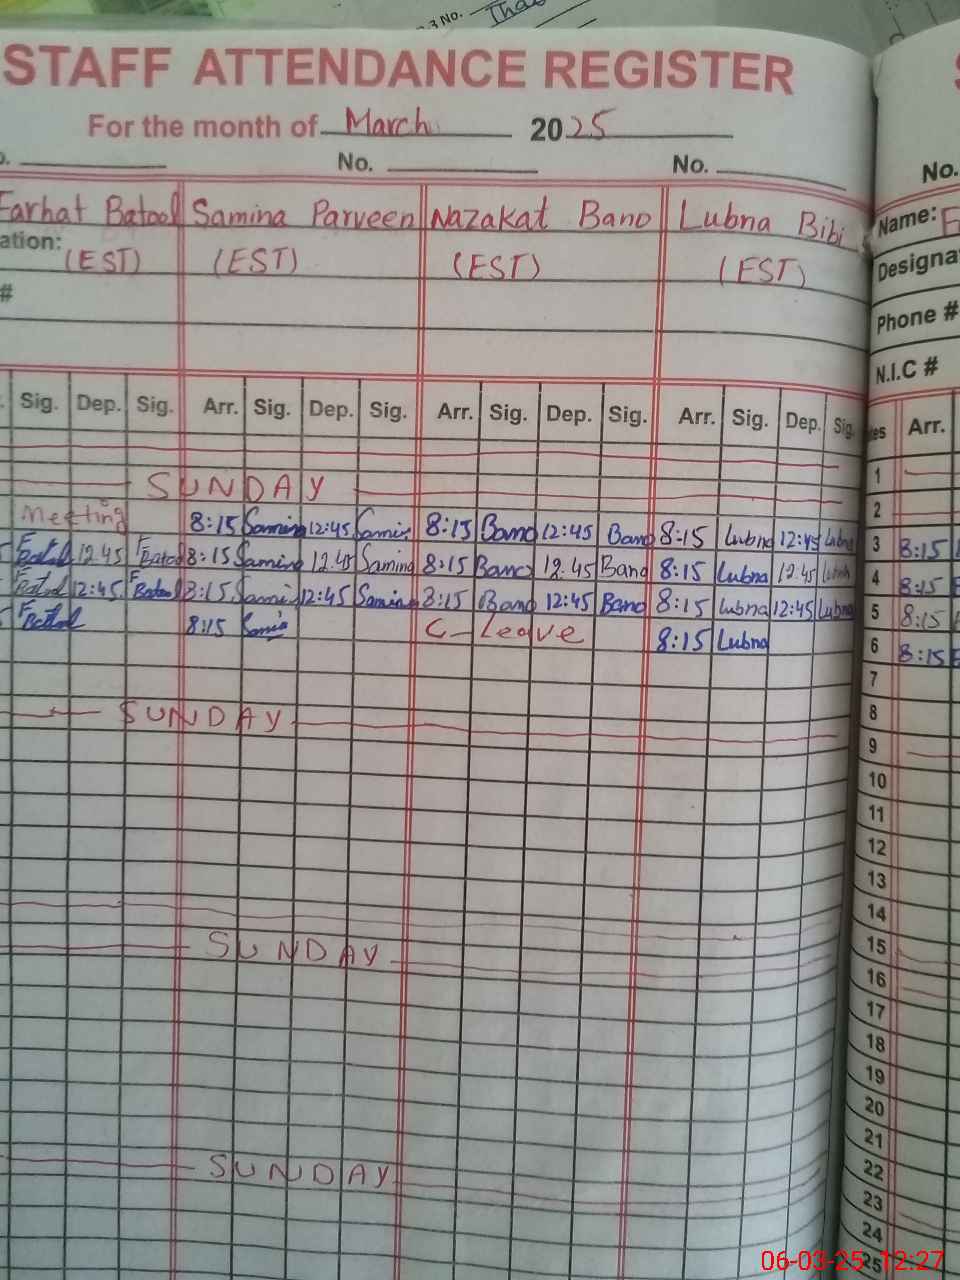 3 No.
STAFF ATTENDANCE REGISTER
For the month of March 2025
No. No. No.
Farhat Batool Samina Parveen Nazakat Bano Lubna Bibi Name:
ation: (EST) (EST) (EST) (EST) Designa
# Phone #
N.I.C #
Sig. Dep. Sig. Arr. Sig. Dep. Sig. Arr. Sig. Dep. Sig. Arr. Sig. Dep. Sig. tes Arr.
1
SUNDAY 2
Meeting 8:15 Samina 12:45 Samina 8:15 Bano 12:45 Bano 8:15 Lubna 12:45 Lubna 3 8:15
F Batool 12.45 F Batool 8:15 Samina 12.45 Samina 8:15 Bano 12.45 Bano 8:15 Lubna 12.45 Lubna 4 8:15
F Batool 12:45 F Batool 8:15 Samina 12:45 Samina 8:15 Bano 12:45 Bano 8:15 Lubna 12:45 Lubna 5 8:15
F Batool 8:15 Samina C-Leave 8:15 Lubna 6 8:15
7
SUNDAY 8
9
10
11
12
13
14
SUNDAY 15
16
17
18
19
20
21
SUNDAY 22
23
24
25
06-03-25 12:27